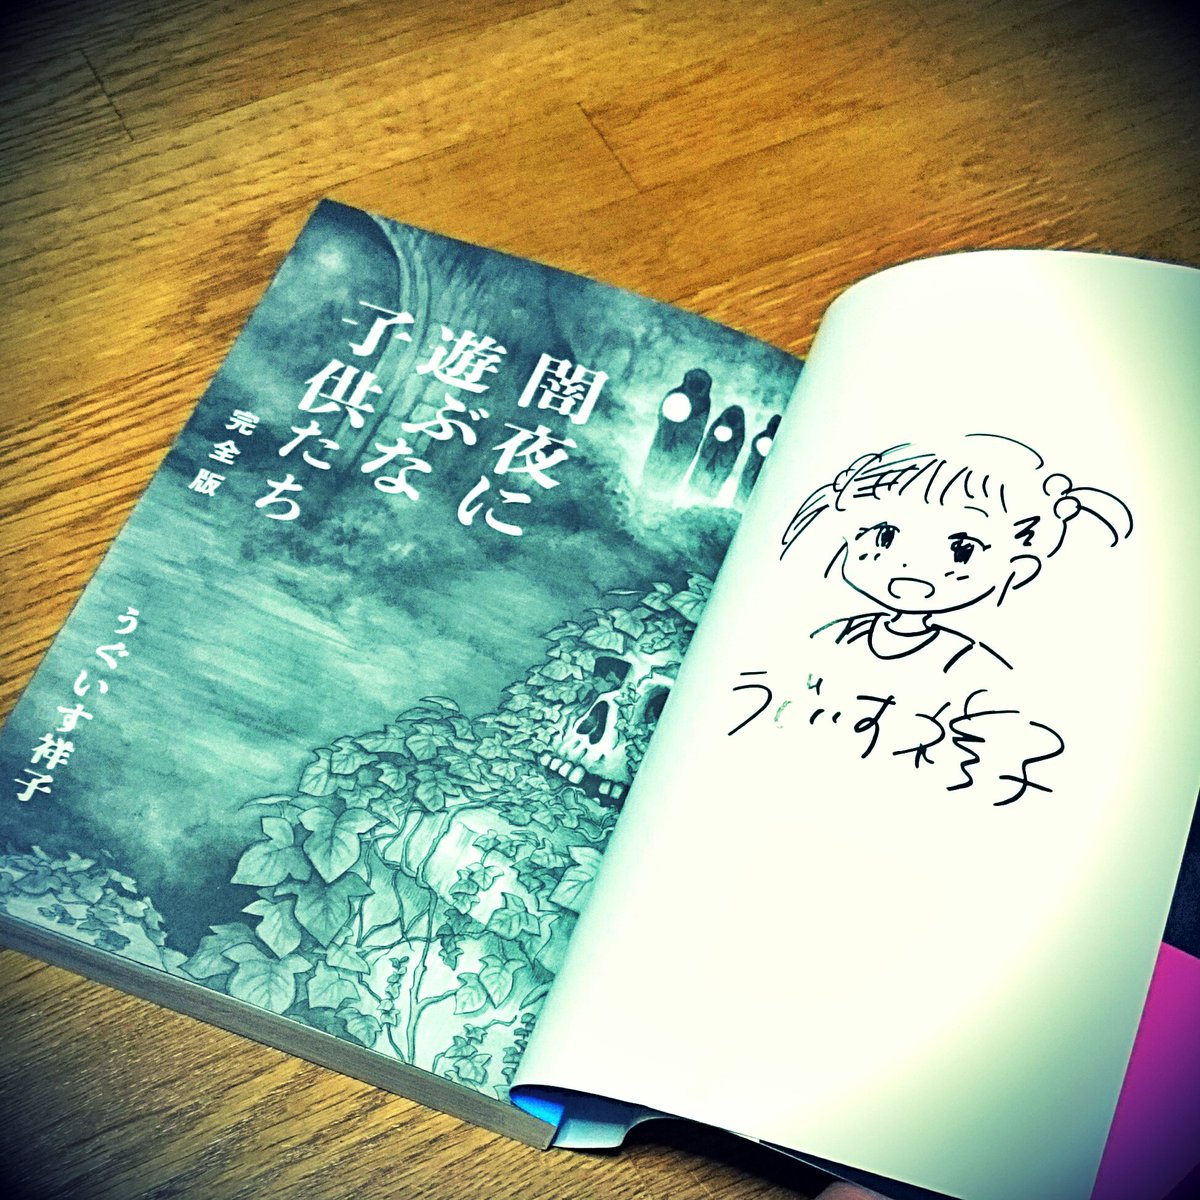 闇夜に
遊ぶな
子供たち
完全版
うぐいす祥子
うぐいす祥子